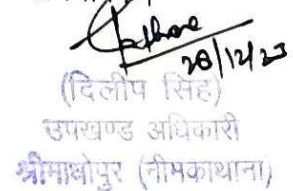 28/12/23
(दिलीप सिंह)
उपखण्ड अधिकारी
श्रीमाधोपुर (नीमकाथाना)